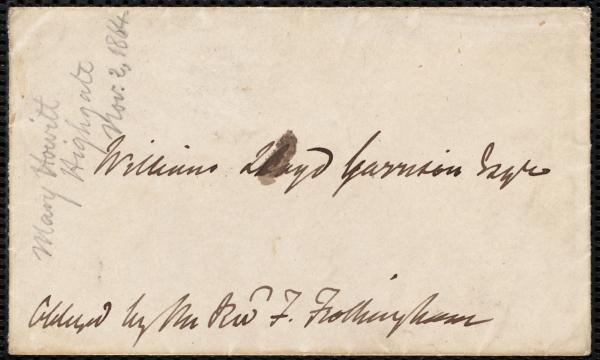 Mary Howitt
Highgate
Nov. 2, 1864.
William Lloyd Garrison Esqre
by the Revd F. Frothingham